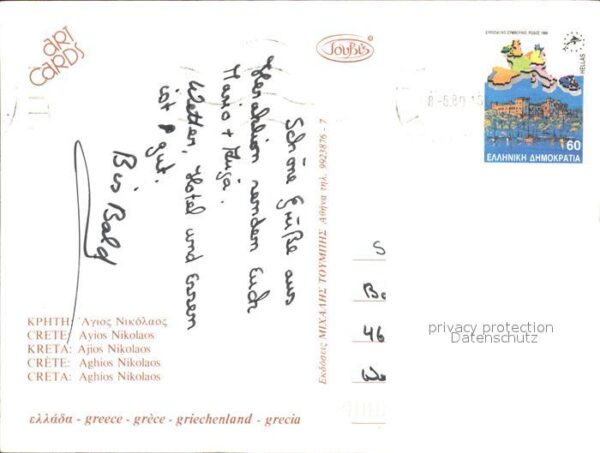 ART
CARDS
Τουβι's
ΕΥΡΩΠΑΪΚΟ ΣΥΜΒΟΥΛΙΟ, ΡΟΔΟΣ 1988
HELLAS
60
ΕΛΛΗΝΙΚΗ ΔΗΜΟΚΡΑΤΙΑ
Schöne Grüße aus
Heraklion senden Euch
Mario +
Wetter, Hotel und Essen
ist gut.
Bis Bald
Εκδόσεις ΜΙΧΑΛΗΣ ΤΟΥΜΠΗΣ Αθήνα τηλ. 9923876 - 7
S
Bo
46
privacy protection
Datenschutz
ΚΡΗΤΗ: Άγιος Νικόλαος
CRETE: Ayios Nikolaos
KRETA: Ajios Nikolaos
CRÈTE: Aghios Nikolaos
CRETA: Aghios Nikolaos
ελλάδα - greece - grèce - griechenland - grecia